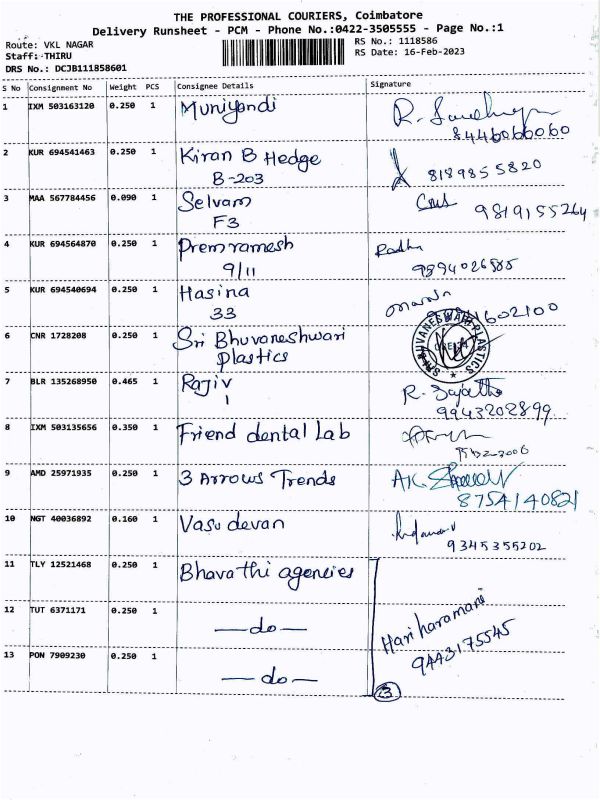 THE PROFESSIONAL COURIERS, Coimbatore
Delivery Runsheet - PCM - Phone No.:0422-3505555 - Page No.:1
Route: VKL NAGAR
RS No.: 1118586
Staff: THIRU
RS Date: 16-Feb-2023
DRS No.: DCJB111858601
S No Consignment No Weight PCS Consignee Details Signature
1 IXM 503163120 0.250 1 Muniyandi R.
8446066060
2 KUR 694541463 0.250 1 Kiran B Hedge
B-203 8189855820
3 MAA 567784456 0.090 1 Selvam
F3 9819155264
4 KUR 694564870 0.250 1 Prem ramesh Radha
9/11 9894026585
5 KUR 694540694 0.250 1 Hasina
33
6 CNR 1728208 0.250 1 Sri Bhuvaneshwari
plastics
SRI BHUVANESHWARI PLASTICS
7 BLR 135268950 0.465 1 Rajiv R.
1 9943202899
8 IXM 503135656 0.350 1 Friend dental Lab
9 AMD 25971935 0.250 1 3 Arrows Trends AK.
8754140821
10 NGT 40036892 0.160 1 Vasudevan
9345355202
11 TLY 12521468 0.250 1 Bharathi agencies
12 TUT 6371171 0.250 1 —do— Hariharamani
9443175545
13 PON 7909230 0.250 1 —do—
3